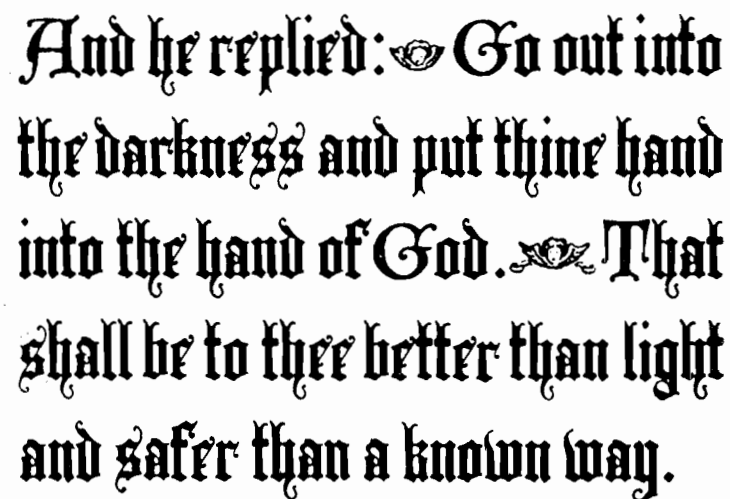 And he replied: Go out into
the darkness and put thine hand
into the hand of God. That
shall be to thee better than light
and safer than a known way.